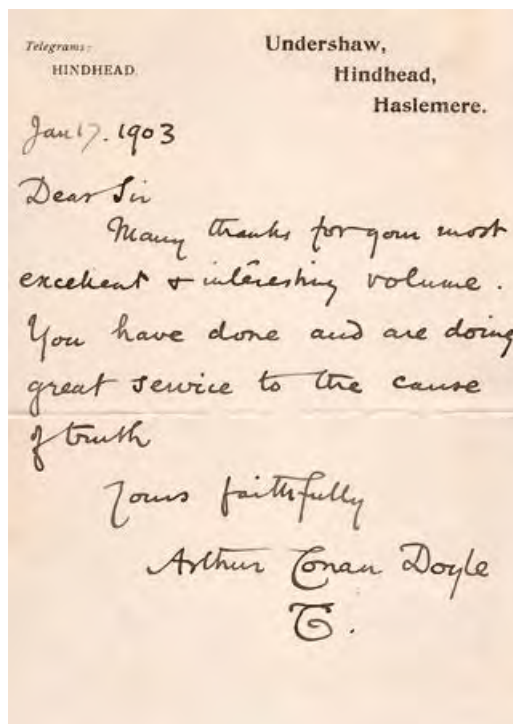 Telegrams:
HINDHEAD.
Undershaw,
Hindhead,
Haslemere.
Jan 17. 1903
Dear Sir
Many thanks for your most
excellent & interesting volume.
You have done and are doing
great service to the cause
of truth
Yours faithfully
Arthur Conan Doyle